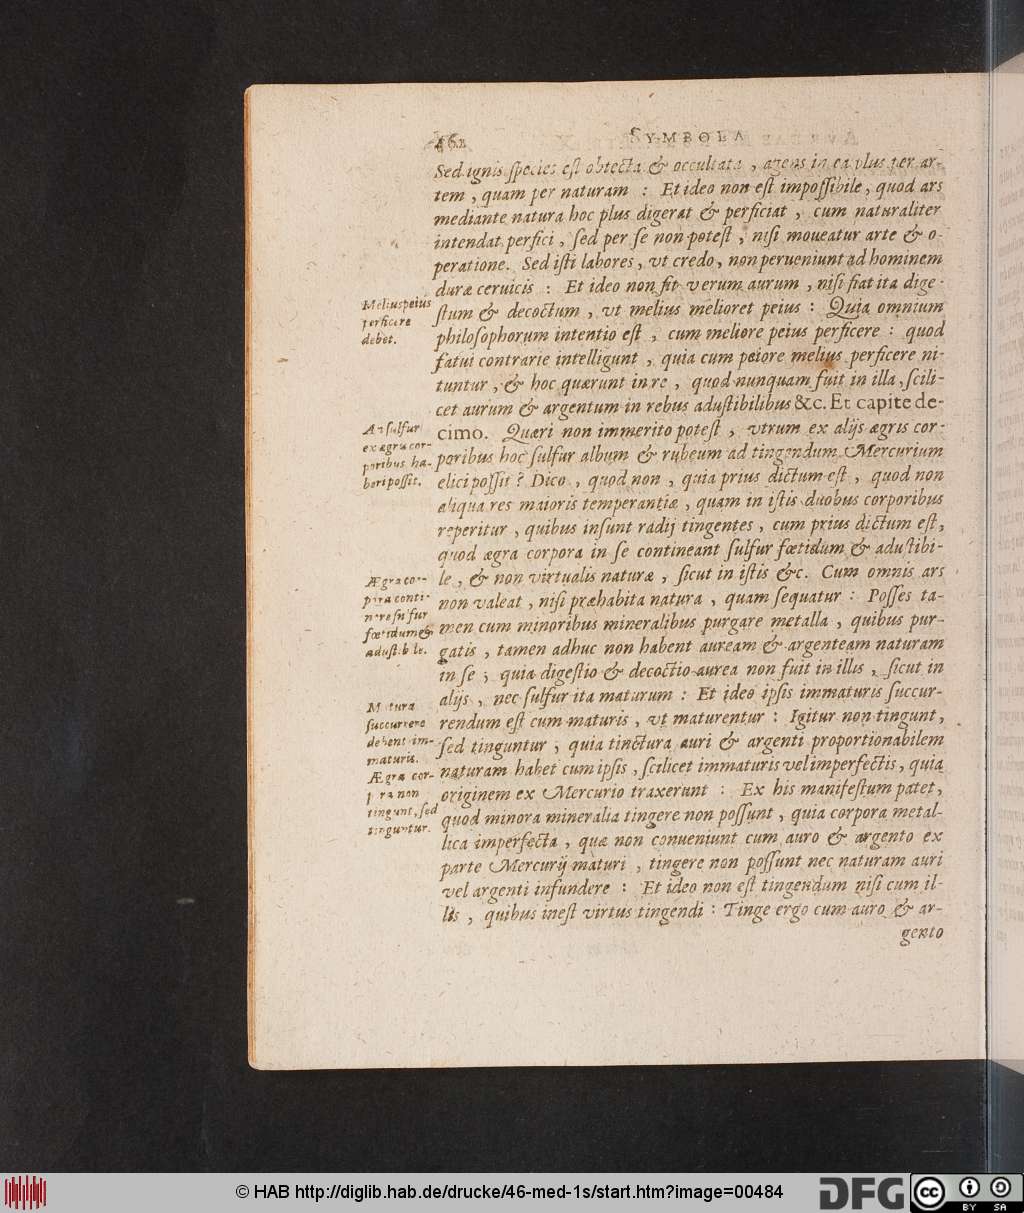 SYMBOLA
Sed ignis species est obtecta & occultata, agens in ea plus per ar-
tem, quam per naturam : Et ideo non est impossibile, quod ars
mediante natura hoc plus digerat & perficiat, cum naturaliter
intendat perfici, sed per se non potest, nisi moueatur arte & o-
peratione. Sed isti labores, vt credo, non perueniunt ad hominem
duræ ceruicis : Et ideo non fit verum aurum, nisi fiat ita dige-
Melius peius
perficere
debet.
stum & decoctum, vt melius melioret peius : Quia omnium
philosophorum intentio est, cum meliore peius perficere : quod
fatui contrarie intelligunt, quia cum peiore melius perficere ni-
tuntur, & hoc quærunt in re, quod nunquam fuit in illa, scili-
cet aurum & argentum in rebus adustibilibus &c. Et capite de-
An sulfur
ex ægris cor-
poribus ha-
beri possit.
cimo. Quæri non immerito potest, vtrum ex alijs ægris cor-
poribus hoc sulfur album & rubeum ad tingendum Mercurium
elici possit? Dico, quod non, quia prius dictum est, quod non
aliqua res maioris temperantiæ, quam in istis duobus corporibus
reperitur, quibus insunt radij tingentes, cum prius dictum est,
quod ægra corpora in se contineant sulfur fœtidum & adustibi-
Ægra cor-
pora conti-
nere sulfur
fœtidum &
adustibile.
le, & non virtualis naturæ, sicut in istis &c. Cum omnis ars
non valeat, nisi præhabita natura, quam sequatur : Posses ta-
men cum minoribus mineralibus purgare metalla, quibus pur-
gatis, tamen adhuc non habent auream & argenteam naturam
in se; quia digestio & decoctio aurea non fuit in illis, sicut in
alijs, nec sulfur ita maturum : Et ideo ipsis immaturis succur-
Matura
succurrere
debent im-
maturis.
rendum est cum maturis, vt maturentur : Igitur non tingunt,
sed tinguntur, quia tinctura auri & argenti proportionabilem
Ægra cor-
pora non
tingunt, sed
tinguntur.
naturam habet cum ipsis, scilicet immaturis vel imperfectis, quia
originem ex Mercurio traxerunt : Ex his manifestum patet,
quod minora mineralia tingere non possunt, quia corpora metal-
lica imperfecta, quæ non conueniunt cum auro & argento ex
parte Mercurij maturi, tingere non possunt nec naturam auri
vel argenti infundere : Et ideo non est tingendum nisi cum il-
lis, quibus inest virtus tingendi : Tinge ergo cum auro & ar-
gento
© HAB http://diglib.hab.de/drucke/46-med-1s/start.htm?image=00484
DFG
cc BY SA